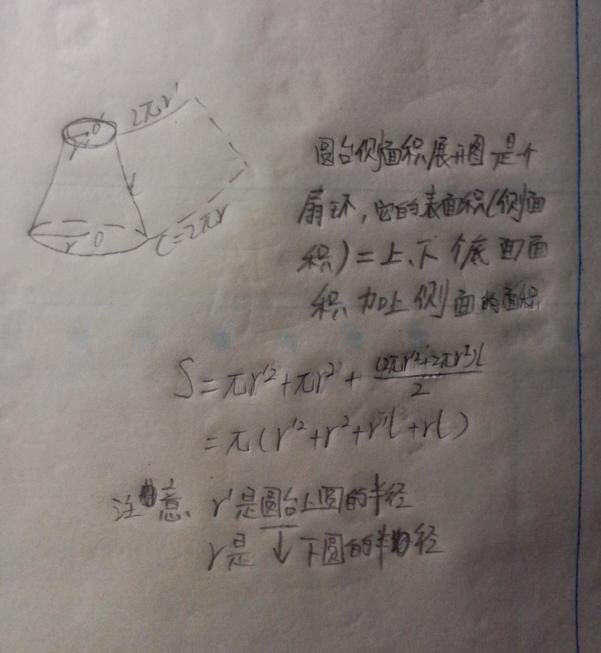 2πr'
o'
r'
l
r
o
C=2πr
圆台侧面积展开图是个
扇环,它的表面积(侧面
积)=上、下个底面面
积加上侧面的面积
S=πr'²+πr²+(2πr'²+2πr²)l/2
=π(r'²+r²+r'l+rl)
注意、r'是圆台上圆的半径
r是↓下圆的半径